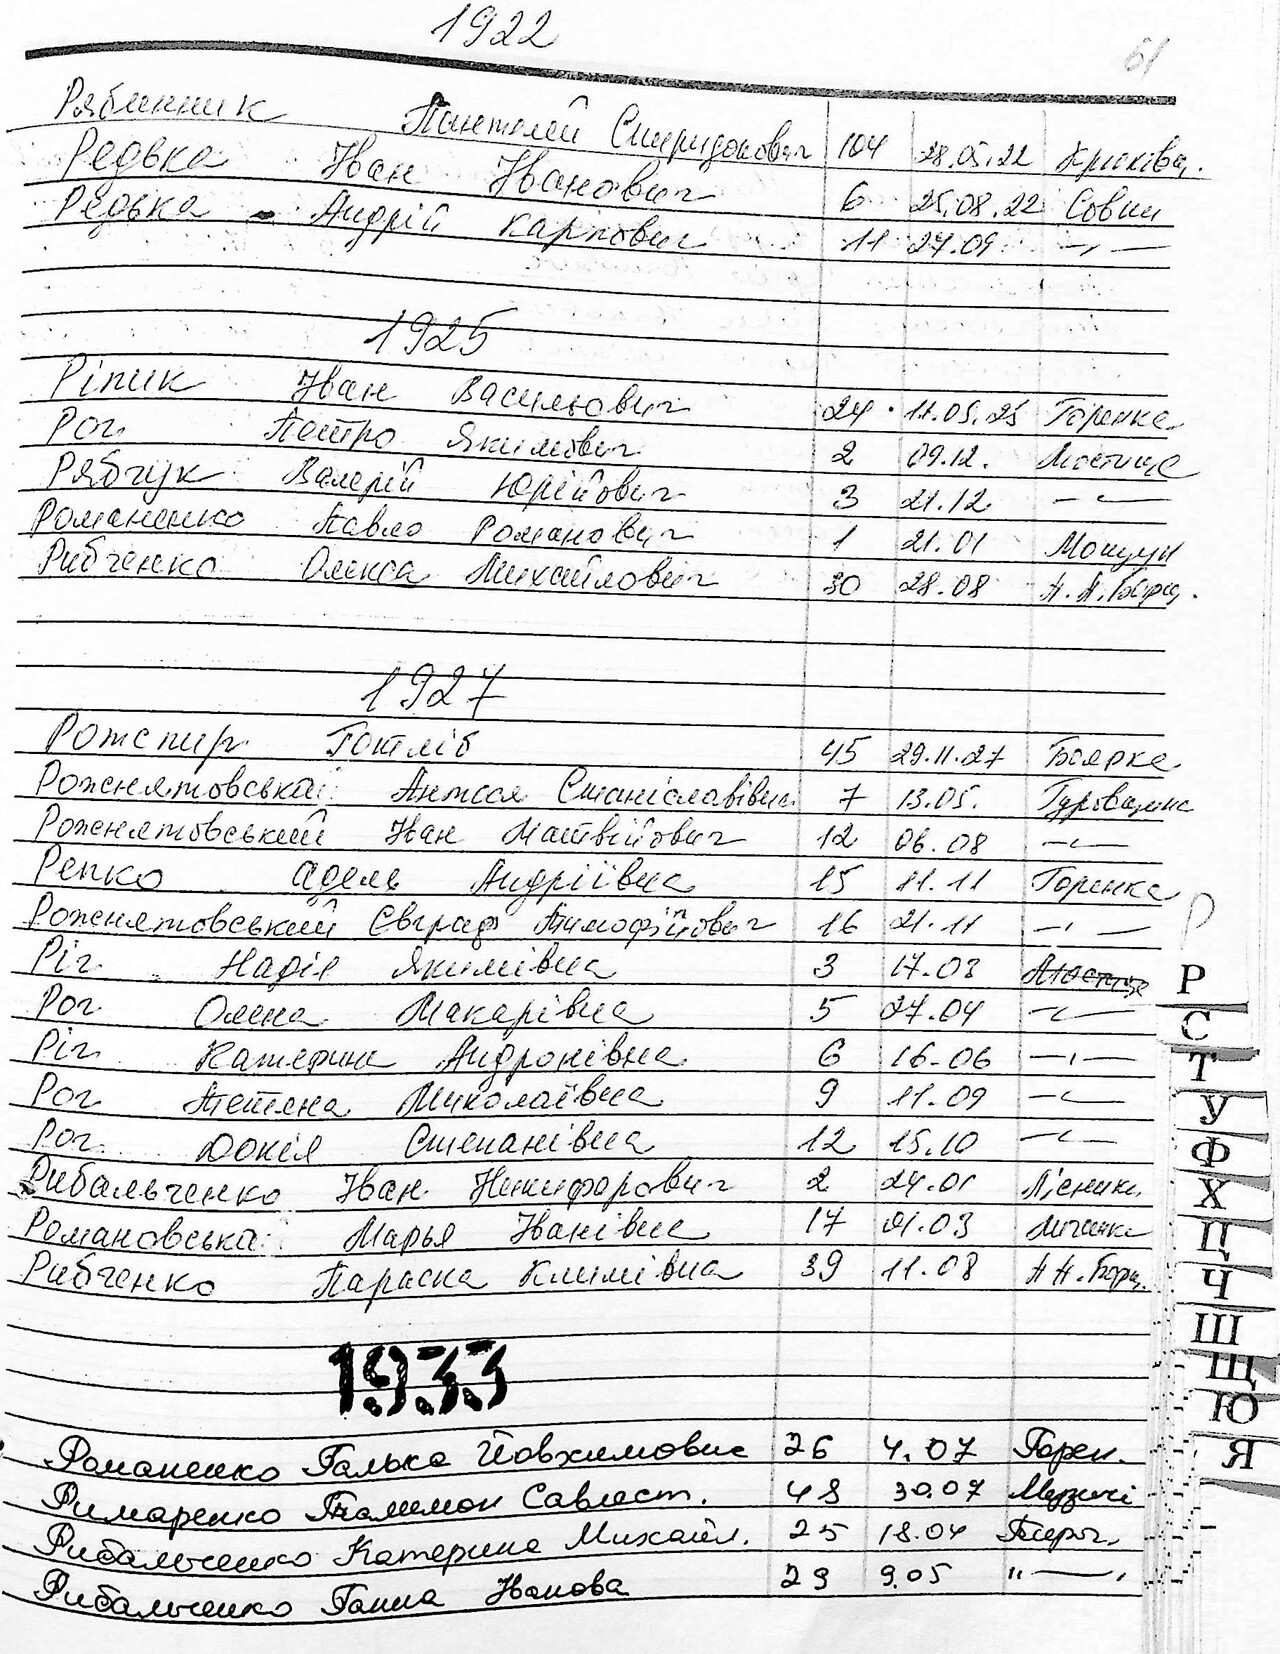 1922
61
Рябинник Пантелей Спиридонович 104 28.05.22 Крюківщ.
Редька Іван Іванович 6 25.08.22 Совки
Редька - Андрій Карпович 11 27.09 -"-
1925
Ріпик Іван Васильович 24 11.05.25 Горенка
Рог Петро Якимович 2 09.12. Мостище
Рябчук Валерій Юрійович 3 21.12 -"-
Романенко Павло Романович 1 21.01 Мощун
Рибченко Олекса Михайлович 30 28.08 П.П.Борщ.
1927
Рожспир Готліб 45 29.11.27 Боярка
Рожнятовська Антося Станіславівна 7 13.05. Гуровщина
Рожнятовський Іван Матвійович 12 06.08 -"-
Репко Адель Андріївна 15 11.11 Горенка
Рожнятовський Євграф Тимофійович 16 21.11 -"-
Ріг Надія Якимівна 3 17.03 Мостище
Рог Олена Макарівна 5 27.04 -"-
Ріг Катерина Андронівна 6 16.06 -"-
Рог Тетяна Миколаївна 9 11.09 -"-
Рог Докія Степанівна 12 15.10 -"-
Рибальченко Іван Никифорович 2 24.01 Лісники
Романовська Марья Іванівна 17 01.03 Личанка
Рибченко Параска Климівна 39 11.08 П П.Борщ.
1933
Романенко Галька Йовхимовна 26 4.07 Горен.
Римаренко Палимон Савласт. 48 30.07 Музичі
Рибальченко Катерина Михайл. 25 18.04 Пирог.
Рибальченко Ганна Іванова 29 9.05 "—"
Р
Р
С
Т
У
Ф
Х
Ц
Ч
Ш
Щ
Ю
Я